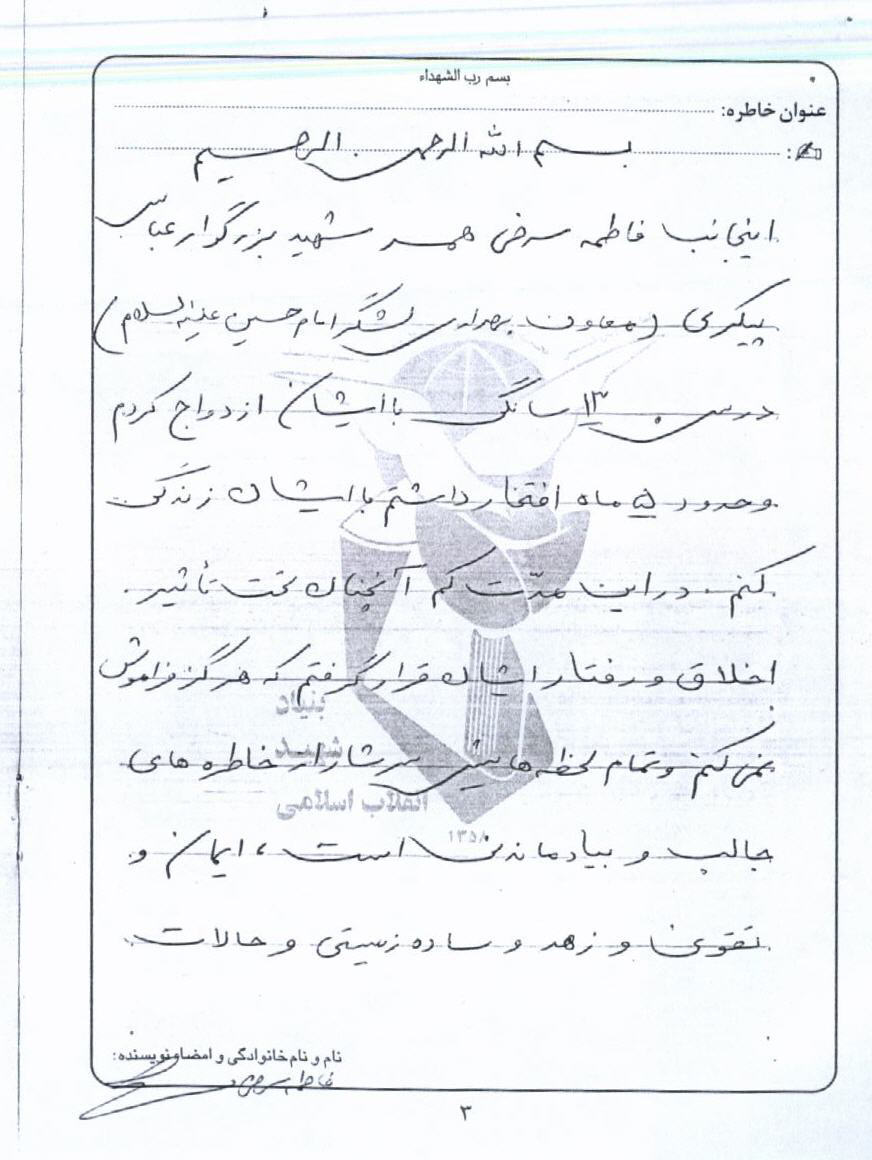 بسم رب الشهداء
عنوان خاطره:
بسم الله الرحمن الرحیم
اینجانب فاطمه سرخی همسر شهید بزرگوار عباس
پیکری (معاون بهداری لشگر امام حسین علیه السلام)
در سن ۱۳ سالگی با ایشان ازدواج کردم
وحدود ۵ ماه افتخار داشتم با ایشان زندگی
کنم. در این مدّت کم آنچنان تحت تأثیر
اخلاق و رفتار ایشان قرار گرفتم که هرگز فراموش
نمی کنم وتمام لحظه هایش سرشار از خاطره های
جالب و بیادماندنی است، ایمان و
تقوی و زهد و ساده زیستی و حالات
بنیاد
شهید
انقلاب اسلامی
۱۳۵۸
نام و نام خانوادگی و امضاء نویسنده:
فاطمه سرخی
۳